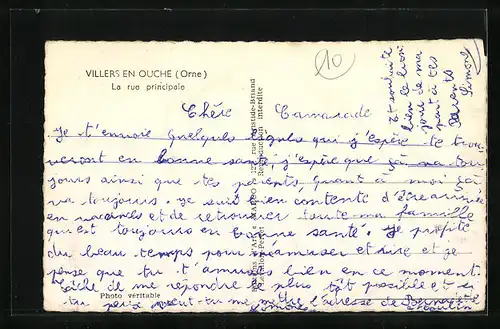 VILLERS EN OUCHE (Orne)
La rue principale
10
Chère Camarade
Je t'envoie quelques lignes qui j'espère te trou
veront en bonne santé, j'espère que ça va tou
jours ainsi que tes parents, quant à moi ça
va toujours. Je suis bien contente d'être arrivée
en vacances et de retrouver toute ma famille
qui est toujours en bonne santé. Je profite
du beau temps pour m'amuser et rire et je
pense que tu t'amuses bien en ce moment
tâche de me répondre le plus tôt possible et si
tu peux veut-tu me mettre l'adresse de Bernadette
Simone
et souhaite
bien le bon
jour de ma
part à tes
parents
Simone
Photo véritable
rue Aristide-Briand
Reproduction interdite